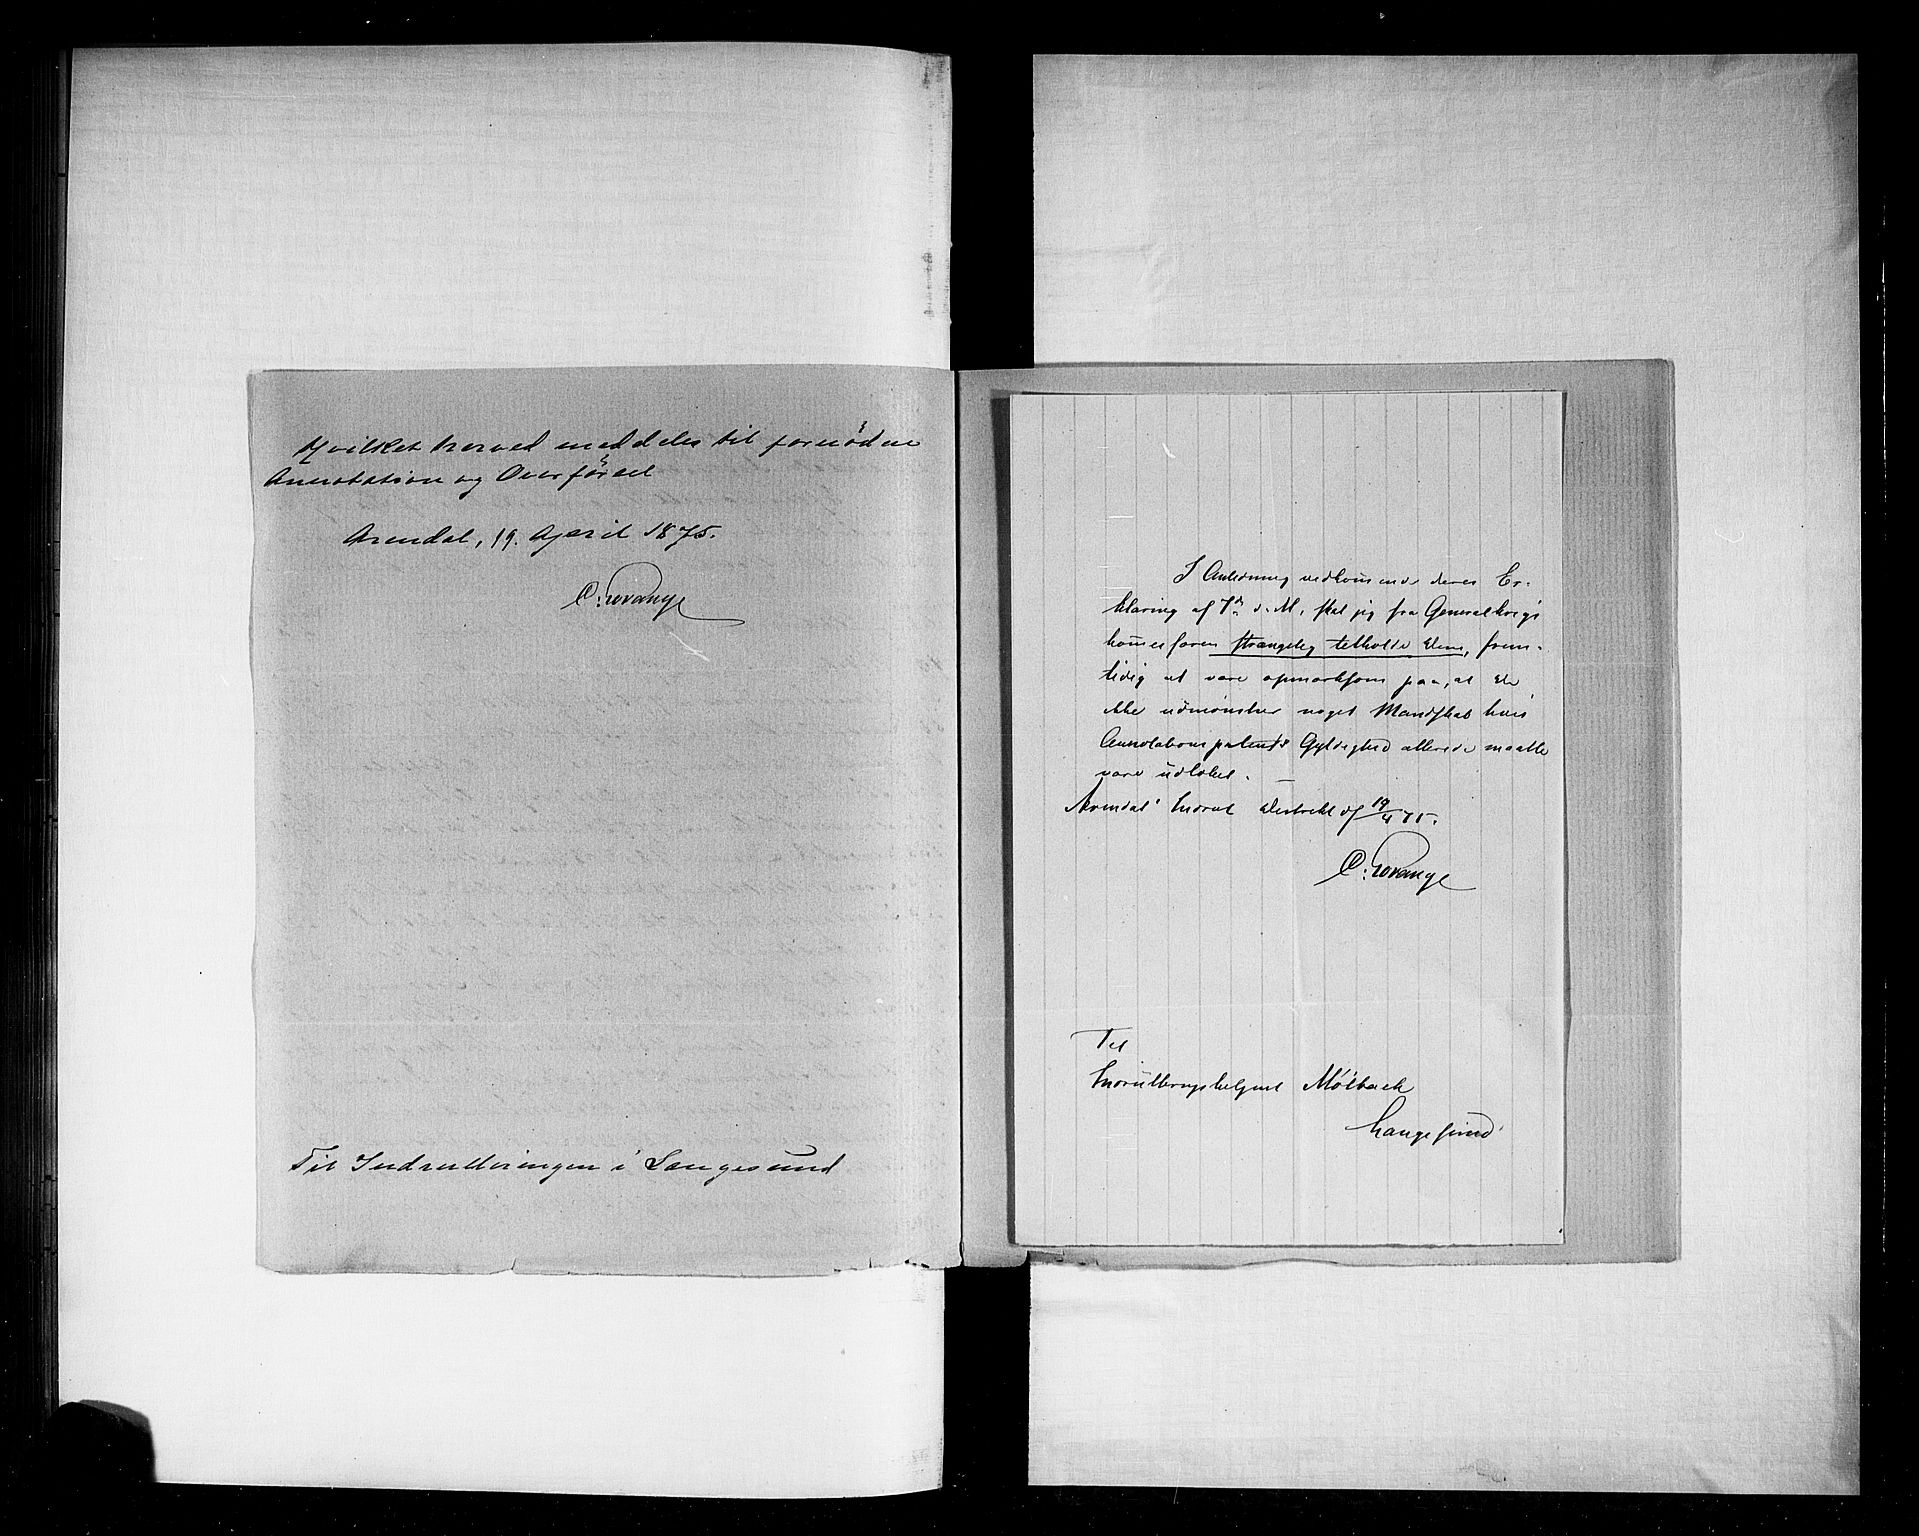 Hvilket herved meddeles til fornöden
Annotation og Overförsel
Arendal, 19. April 1875.
Til Indrulleringen i Langesund
I Anledning vedkommende deres Er-
klæring af 7de d. M. skal jeg fra Generalkrigs
kommissæren strængelig tilholde Dem, frem-
tidig at være opmærksom paa, at De
ikke udmønstrer noget Mandskab hvis
Annotations patents Gyldighed allerede maatte
være udløbet. —
Arendals Indrul Distrikt 19/4 75.
Til
Indrulleringsbetjent Mølbach
Langesund